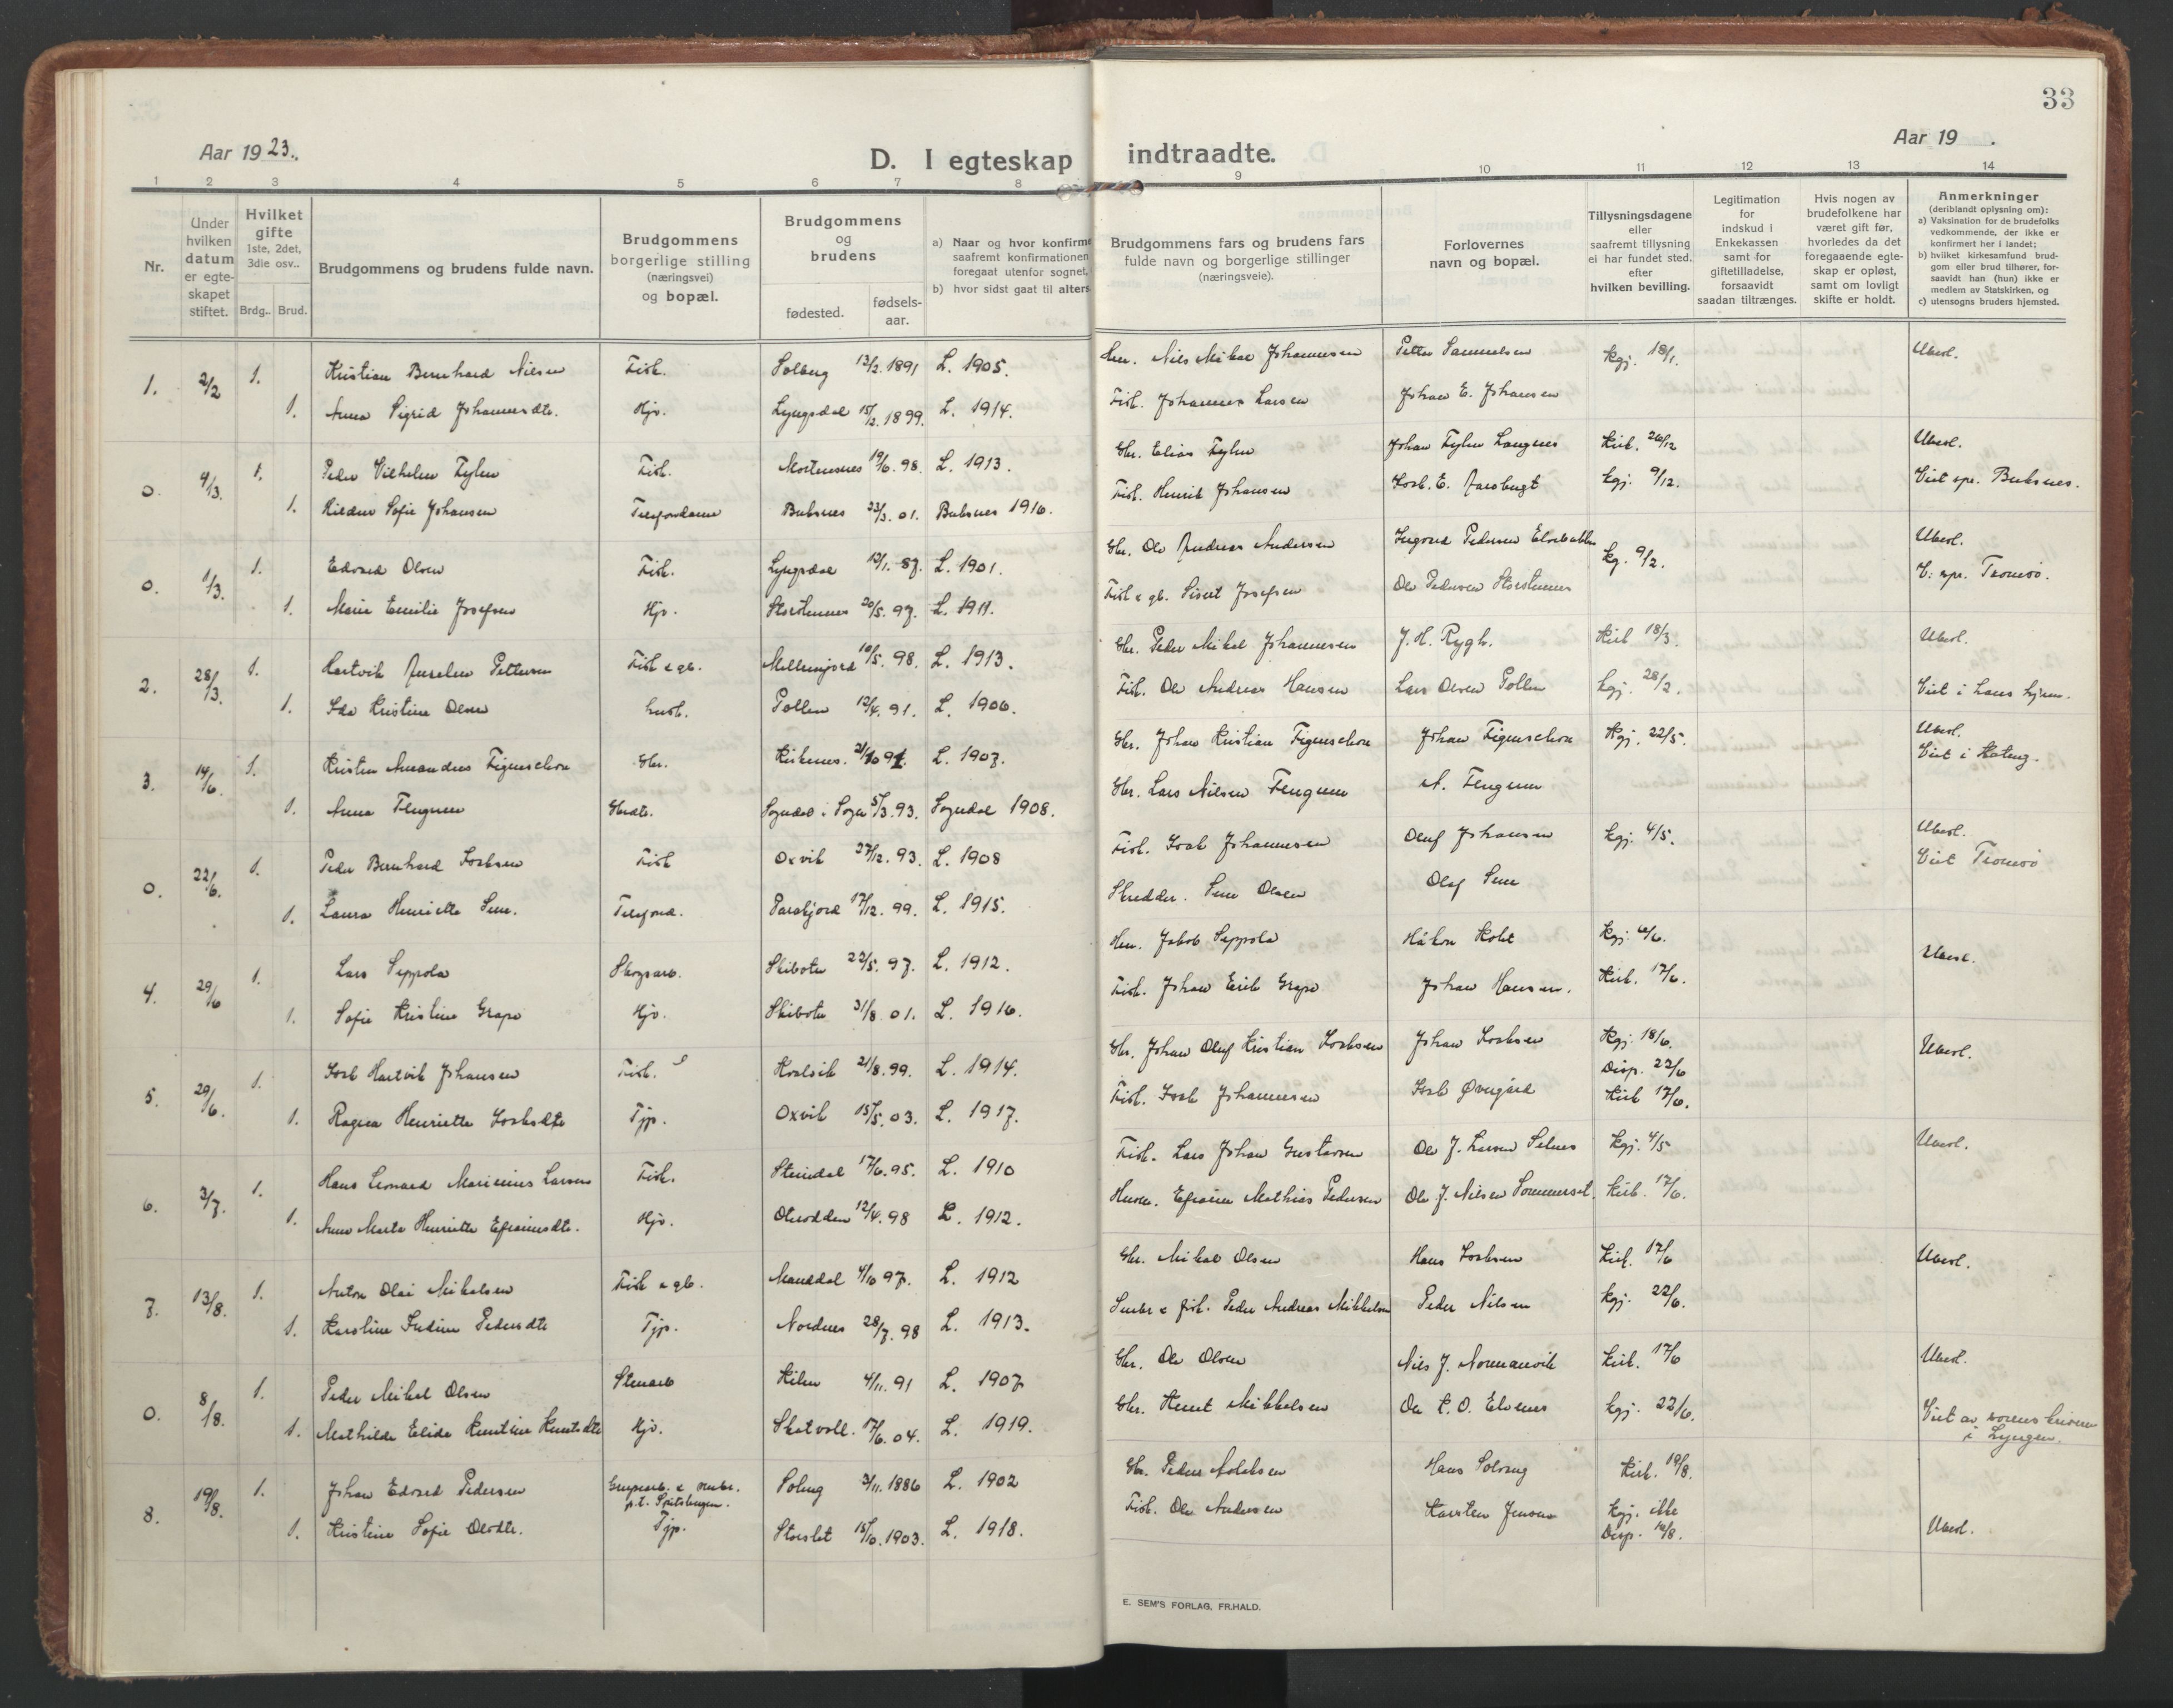 33
Aar 1923.
D. I egteskap indtraadte.
Aar 19 .
1 2 3 4 5 6 7 8 9 10 11 12 13 14
Nr.
Under hvilken datum er egte-skapet stiftet.
Hvilket gifte 1ste, 2det, 3die osv..
Brdg.. Brud.
Brudgommens og brudens fulde navn.
Brudgommens borgerlige stilling (næringsvei) og bopæl.
Brudgommens og brudens
fødested. fødsels-aar.
a) Naar og hvor konfirme
saafremt konfirmationen
foregaat utenfor sognet,
b) hvor sidst gaat til alters
Brudgommens fars og brudens fars
fulde navn og borgerlige stillinger
(næringsveie).
Forlovernes
navn og bopæl.
Tillysningsdagene
eller
saafremt tillysning
ei har fundet sted,
efter
hvilken bevilling.
Legitimation
for
indskud i
Enkekassen
samt for
giftetilladelse,
forsaavidt
saadan tiltrænges.
Hvis nogen av
brudefolkene har
været gift før,
hvorledes da det
foregaaende egte-
skap er opløst,
samt om lovligt
skifte er holdt.
Anmerkninger
(deriblandt oplysning om):
a) Vaksination for de brudefolks
vedkommende, der ikke er
konfirmert her i landet;
b) hvilket kirkesamfund brud-
gom eller brud tilhører, for-
saavidt han (hun) ikke er
medlem av Statskirken, og
c) utensogns bruders hjemsted.
1. 2/2 1. Kristian Bernhard Nilsen Fisk. Solberg 13/2. 1891 L. 1905. Nils Mikal Johannesen Petter Samuelsen kgj. 18/1. Ubesl.
1. Anna Sigrid Johannesdtr. Hjv. Lyngsdal 15/2. 1899. L. 1914. Fisk. Johannes Larsen Johan E. Johansen
0. 4/3. 1. Peder Vilhelm Fylen Fisk. Mortensnes 19/6. 98. L. 1913. Gbr. Elias Fylen Johan Fylen Langnes Kirk. 26/12 Ubesl.
1. Sofie Johansen Telefondame Buksnes 23/3. 01. Buksnes 1916. Fisk. Henrik Johansen kgj. 9/12. Buksnes.
0. 1/3. 1. Edvard Olsen Fisk. Lyngsdal 12/1. 87. L. 1901. Gbr. Ole Andreas Andersen Pedersen kg. 9/2. Ubesl.
1. Marie Emilie Josefsen Hjv. Storstennes 20/5. 97. L. 1911. Fisk & gb. Sivert Josefsen Ole Pedersen Storstennes Tromsø.
2. 28/3. 1. Hartvik Anselm Pettersen Fisk & gb. 10/5. 98. L. 1913. Gbr. Peder Mikal Johannesen J. H. Rygh. Kirk 18/3. Ubesl.
1. Ida Kristine Olsen husb. Pollen 12/4. 91. L. 1906. Fisk. Ole Andreas Hansen Lars Olsen Pollen kgj. 28/2. Viet i hans hjem.
3. 14/6. 1. Kristen Amandus Figenschou Gbr. Kirkenes. 21/10 91. L. 1907. Gbr. Johan Kristian Figenschou Johan Figenschou Kgj. 22/5. Ubesl.
Viet i
1. Anna Flugum Gbrdtr. Sogndal i Sogn 5/3. 93. Sogndal 1908. Gbr. Lars Nilsen Flugum A. Flugum
0. 22/6. 1. Peder Bernhard Isaksen Fisk Oxvik 27/12. 93. L. 1908 Fisk. Isak Johannesen Oluf Johansen kgj. 4/5. Ubesl.
1. Laura Henriette Sene. Telefond. 17/12. 99. L. 1915. Skredder. Sene Olsen Olaf Sene Viet Tromsø
4. 29/6 1. Lars Seppola Skogsarb. Skibotn 22/5. 97. L. 1912. Jakob Seppola Håkon Ubesl.
1. Sofie Kristine Grape Hjv. Skibotn 31/8 01. L. 1916. Fisk. Johan Erik Grape Johan Hansen. Kirk. 17/6.
5. 29/6. 1. Isak Hartvik Johansen Fisk. Kvalvik 21/8. 99. L. 1914. Gbr. Johan Oluf Kristian Isaksen Johan Isaksen Kgj. 18/6. Ubesl.
Disp. 22/6
1. Ragna Henriette Isaksdtr Tjp. Oxvik 15/5. 03. L. 1917. Fisk. Isak Johannesen Isak Øvergård Kirk 17/6.
6. 3/7. 1. Hans Leonard Marinius Larsen Fisk. Steindal 17/6. 95. L. 1910 Fisk. Lars Johan Gustavsen Ole J. Larsen Selnes kgj. 4/5 Ubesl.
1. Anna Marta Henriette Efraimsdtr. Hjv. Oteodden 12/4. 98 L. 1912. Husm. Efraim Mathias Pedersen Ole J. Nilsen Sommerset. Kirk. 17/6.
7. 13/8. 1. Anton Olai Mikalsen Fisk & gb. Manddal 4/10 97. L. 1912 Gbr. Mikal Olsen Hans Isaksen Kirk. 17/6 Ubesl.
1. Karoline Indine Pedersdtr Tjp. Nordnes 28/7. 98 L. 1913. Snekr & fisk. Peder Andreas Mikkelsen Peder Nilsen kgj. 22/6.
0. 8/8. 1. Peder Mikal Olsen Stenarb Kilen 4/11. 91 L. 1907 Gbr. Ole Olsen Nils J. Normanvik Kirk. 17/6 Ubesl.
1. Mathilde Elida Knutine Knutsdtr Hjv. Skatvoll. 17/6. 04. L. 1919. Gbr. Knut Mikkelsen Ole K. O. Elvenes kgj. 22/6. Viet av sorenskriveren
i Lyngen.
8. 19/8. 1. Johan Edvard Pedersen Grubearb. & snekr. Soleng 3/11. 1886 L. 1902 Gbr. Peder Hans Solveng Kirk. 19/8.
p.t. Spitsbergen.
1. Kristine Sofie Olsdtr. Tjp. Storslet 15/10. 1903. L. 1918. Fisk. Ole Andersen Karsten Jensen Kgj. ikke Ubesl.
Disp. 14/8.
E. SEM'S FORLAG, FR.HALD.